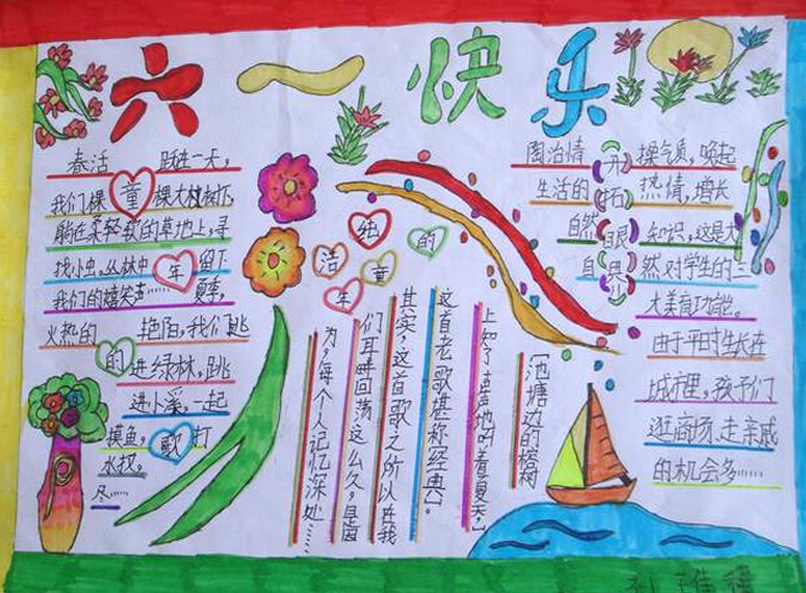 六一快乐
春活 跃在一天，
我们棵 棵大树下，
躺在柔轻轻的草地上，寻
找小虫，丛林中 留下
我们的嬉笑声…… 夏季，
火热的 艳阳，我们跳
进绿林，跳
进小溪，一起
摸鱼， 打
水仗。
尽……
童
年
的
歌
纯
洁
的
童
年
池塘边的榕树
上知了声声地叫着夏天，
这首老歌堪称经典。
其实，这首歌之所以在我
们耳畔回荡这么久，是因
为，每个人记忆深处……
开
拓
眼
界
陶治情 操气质，唤起
生活的 热情，增长
自然 知识，这是大
自 然对学生的三
大美育功能。
由于平时生长在
城市里，孩子们
逛商场、走亲戚
的机会多……